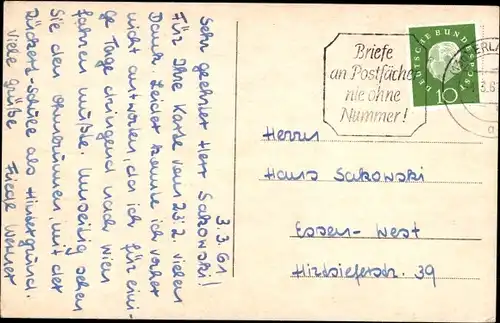 3.3.61
Sehr geehrter Herr Sakowski!
Für Ihre Karte vom 23.2. vielen
Dank. Leider konnte ich vorher
nicht antworten, da ich für eini-
ge Tage dringend nach Wien
fahren mußte. Umseitig sehen
Sie den Ohmbrunnen, mit der
Rückert-Schule als Hintergrund.
Viele Grüße
Briefe
an Postfächer
nie ohne
Nummer!
DEUTSCHE BUNDESPOST
10
ERLA
3.6
Herrn
Hans Sakowski
Essen-West
Hirtsieferstr. 39